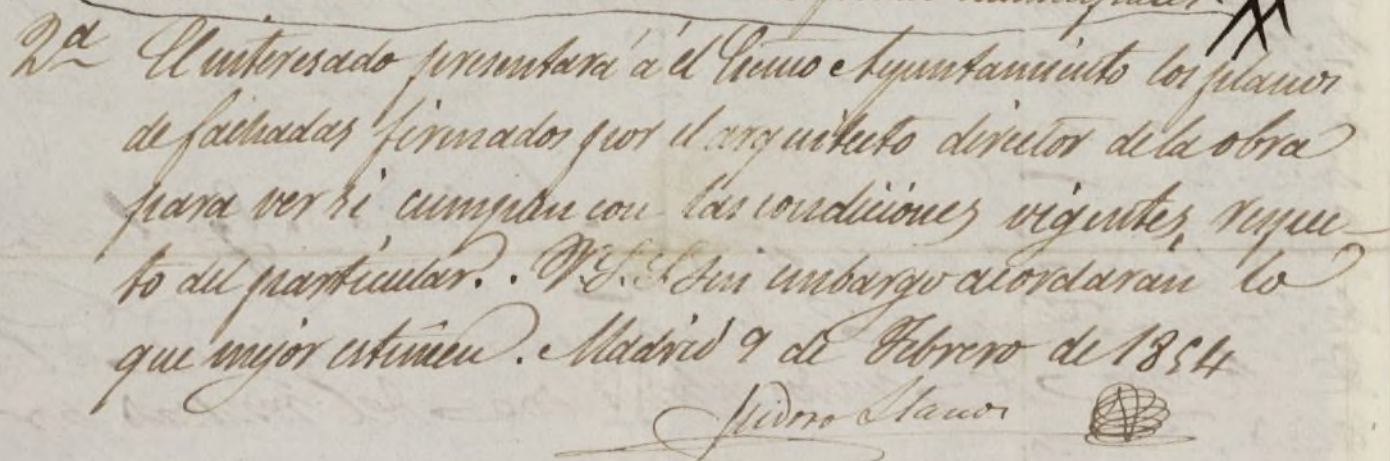 2ª El interesado presentará á el Excmo Ayuntamiento los planos
de fachadas firmados por el arquitecto director de la obra
para ver si cumplen con las condiciones vigentes, respec-
to del particular. V.S.S. sin embargo acordarán lo
que mejor estimen. Madrid 9 de Febrero de 1854
Isidoro Llanos